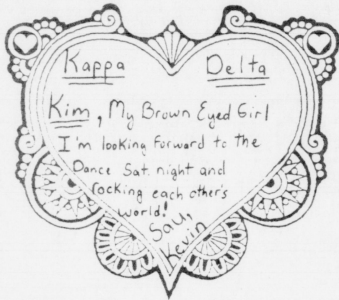 Kappa Delta
Kim, My Brown Eyed Girl
I'm looking forward to the
Dance Sat. night and
rocking each other's
world!
Kevin